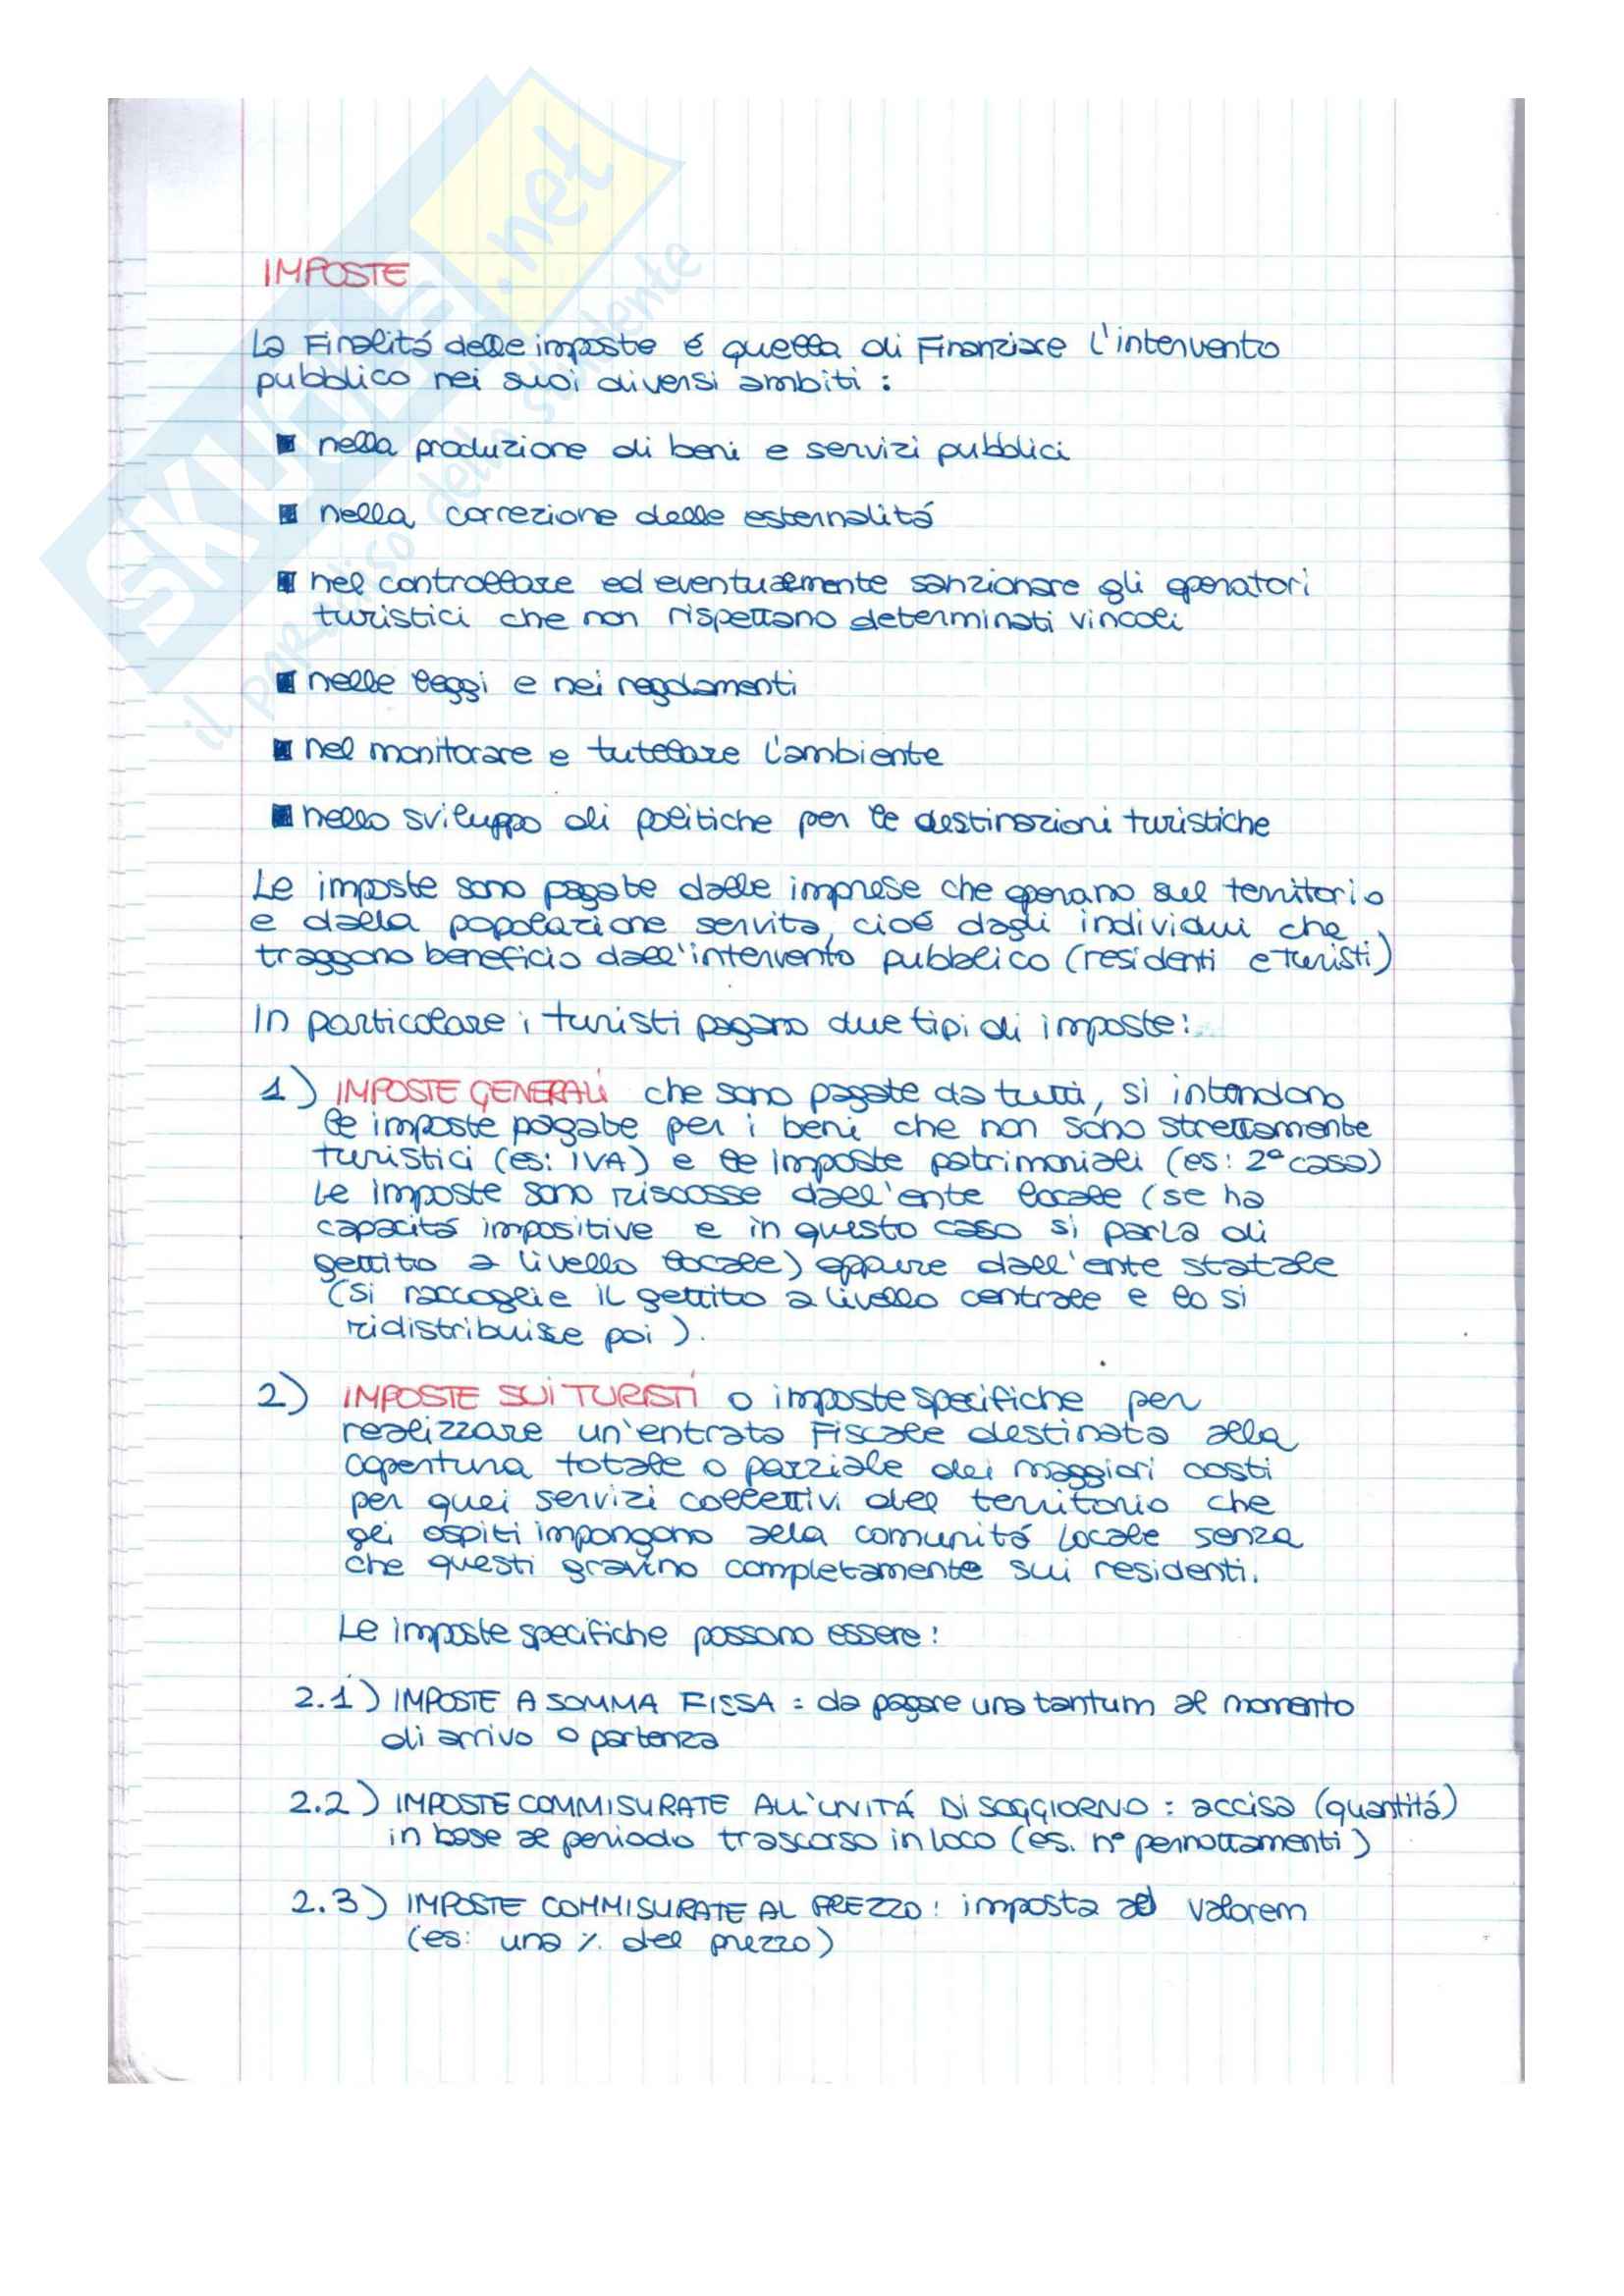 IMPOSTE
La Finalitá delle imposte é quella di Finanziare l'intervento
pubblico nei suoi diversi ambiti :
■ nella produzione di beni e servizi pubblici
■ nella correzione delle esternalitá
■ nel controllare ed eventualmente sanzionare gli operatori
turistici che non rispettano determinati vincoli
■ nelle leggi e nei regolamenti
■ nel monitorare e tutelare l'ambiente
■ nello sviluppo di politiche per le destinazioni turistiche
Le imposte sono pagate dalle imprese che operano sul territorio
e dalla popolazione servita, cioé dagli individui che
traggono beneficio dall'intervento pubblico (residenti e turisti)
In particolare i turisti pagano due tipi di imposte:
1) IMPOSTE GENERALI che sono pagate da tutti, si intendono
le imposte pagate per i beni che non sono strettamente
turistici (es: IVA) e le imposte patrimoniali (es: 2ª casa)
Le imposte sono riscosse dall'ente locale (se ha
capacitá impositive e in questo caso si parla di
gettito a livello locale) oppure dall'ente statale
(si raccoglie il gettito a livello centrale e lo si
ridistribuisce poi).
2) IMPOSTE SUI TURISTI o imposte specifiche per
realizzare un'entrata Fiscale destinata alla
copertura totale o parziale dei maggiori costi
per quei servizi collettivi del territorio che
gli ospiti impongono alla comunitá locale senza
che questi gravino completamente sui residenti.
Le imposte specifiche possono essere:
2.1) IMPOSTE A SOMMA FISSA : da pagare una tantum al momento
di arrivo o partenza
2.2) IMPOSTE COMMISURATE ALL'UNITÁ DI SOGGIORNO : accisa (quantitá)
in base al periodo trascorso in loco (es. nº pernottamenti)
2.3) IMPOSTE COMMISURATE AL PREZZO: imposta ad valorem
(es: una % del prezzo)
SKUOLA.net
il paradiso dello studente